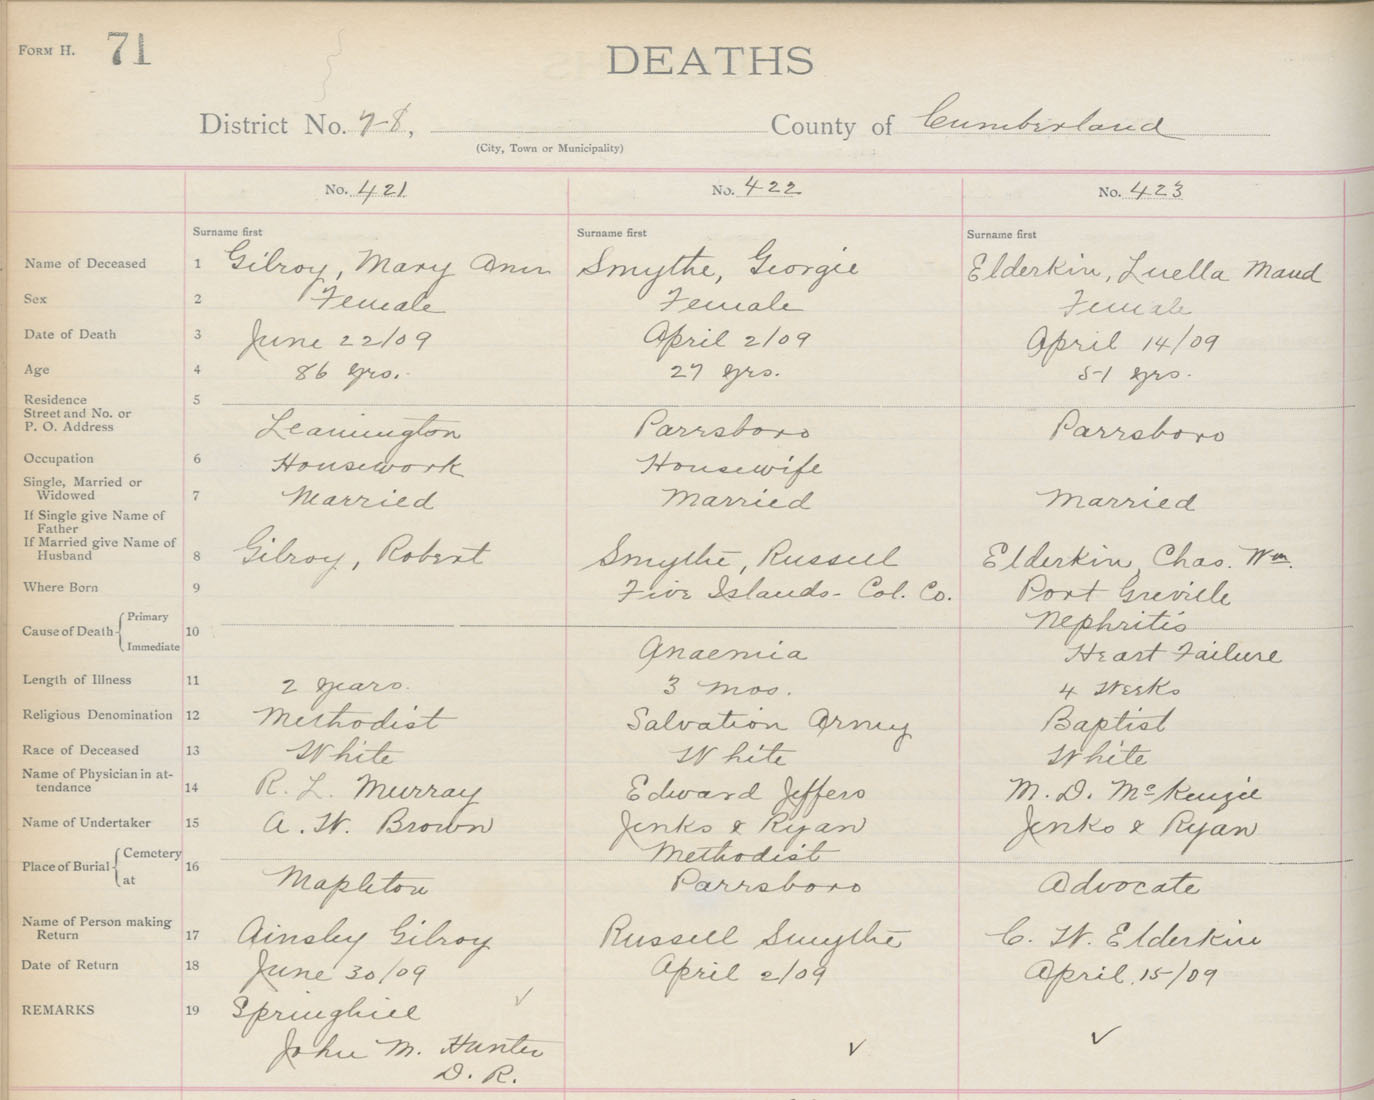 FORM H. 71
DEATHS
District No. 7-8, County of Cumberland
(City, Town or Municipality)
No. 421 No. 422 No. 423
Surname first Surname first Surname first
Name of Deceased 1 Gilroy, Mary Ann Smythe, Georgie Elderkin, Luella Maud
Sex 2 Female Female Female
Date of Death 3 June 22/09 April 2/09 April 14/09
Age 4 86 yrs. 27 yrs. 51 yrs.
Residence 5
Street and No. or
P. O. Address Leamington Parrsboro Parrsboro
Occupation 6 Housework Housewife
Single, Married or
Widowed 7 Married Married Married
If Single give Name of
Father
If Married give Name of
Husband 8 Gilroy, Robert Smythe, Russell Elderkin, Chas. Wm.
Where Born 9 Five Islands - Col. Co. Port Greville
Cause of Death Primary Nephritis
10
Immediate Anaemia Heart Failure
Length of Illness 11 2 years. 3 mos. 4 weeks
Religious Denomination 12 Methodist Salvation Army Baptist
Race of Deceased 13 White White White
Name of Physician in at-
tendance 14 R. L. Murray Edward Jeffers M. D. McKenzie
Name of Undertaker 15 A. W. Brown Jenks & Ryan Jenks & Ryan
Place of Burial Cemetery 16 Methodist
at Mapleton Parrsboro Advocate
Name of Person making
Return 17 Ainsley Gilroy Russell Smythe C. W. Elderkin
Date of Return 18 June 30/09 April 2/09 April 15/09
REMARKS 19 Springhill ✓
John M. Hunter ✓ ✓
D. R.